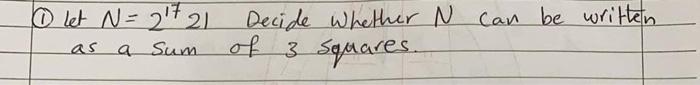 ① let N = 2¹⁷ 21 Decide whether N can be written
as a sum of 3 squares.